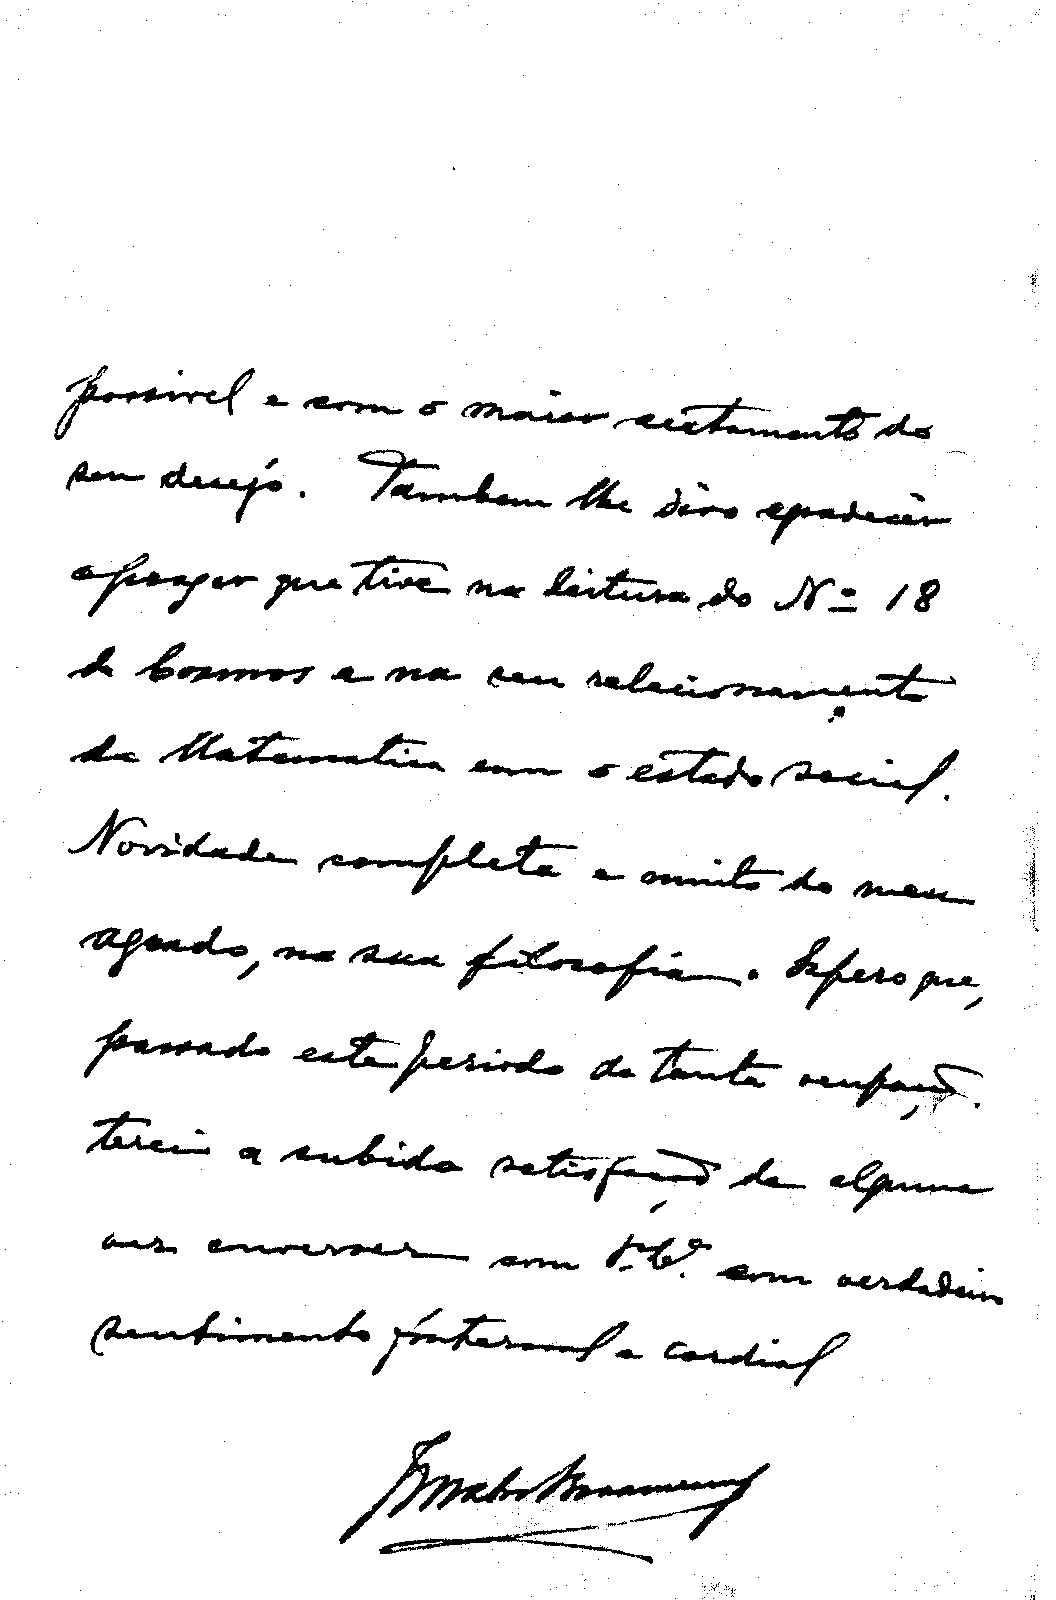 possivel e com o maior acatamento do
seu desejo. Tambem lhe devo agradecer
o prazer que tive na leitura do Nº 18
de Cosmos e na seu relacionamento
da Matematica com o estado social.
Novidade completa e muito do meu
agrado, na sua filosofia. Espero que,
passado este periodo de tanta ocupação.
terei a subida satisfação de alguma
vez conversar com V. Cª. com verdadeiro
sentimento fraternal e cordial